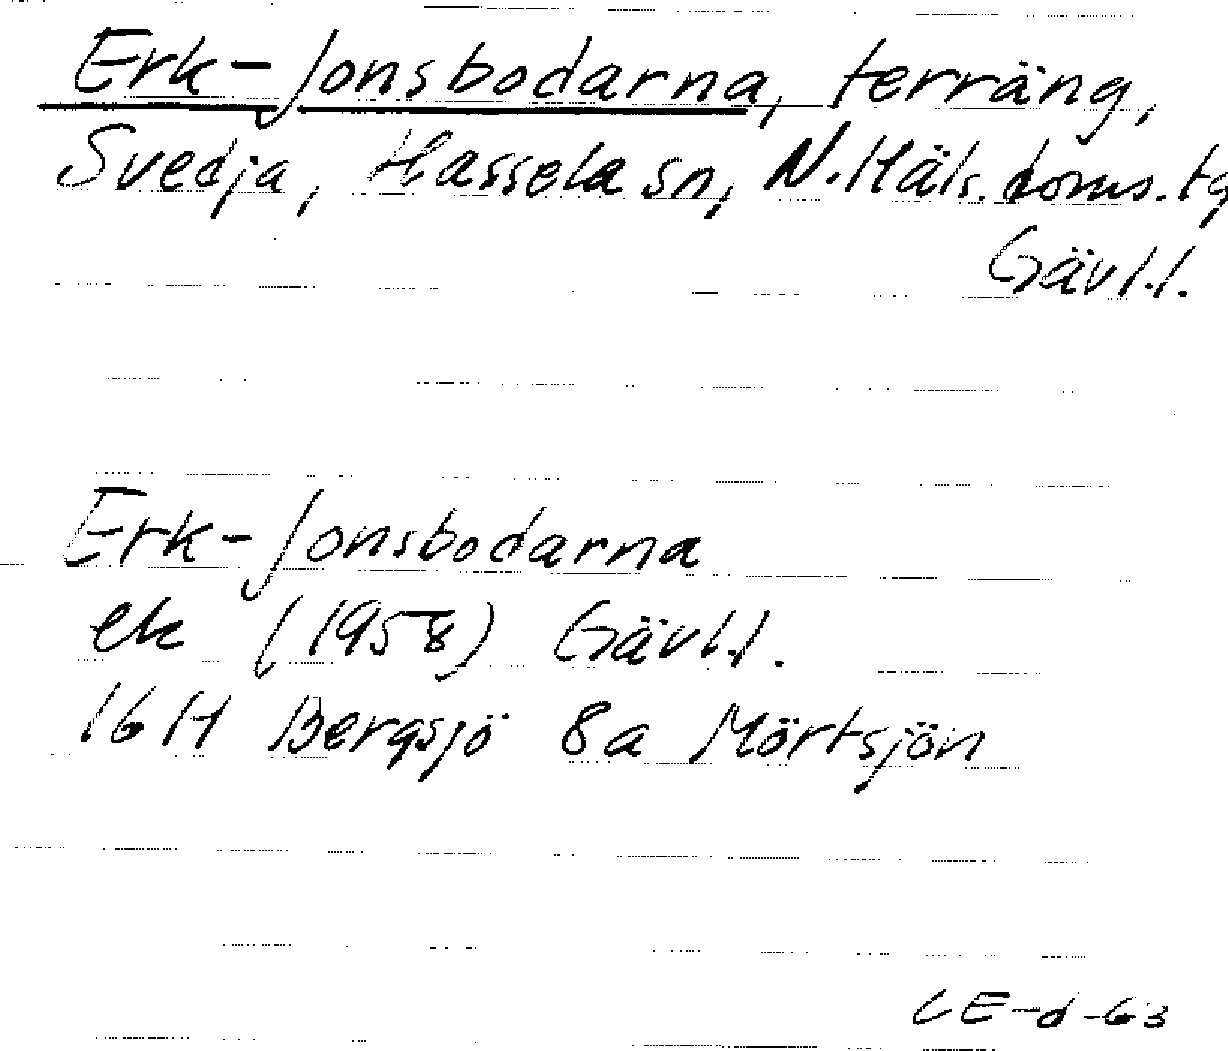 Erk-Jonsbodarna, terräng,
Svedja, Hassela sn, N. Häls. doms. tg
Gävl.l.
Erk-Jonsbodarna
ek (1958) Gävl.l.
16H Bergsjö 8a Mörtsjön
CE-d-63